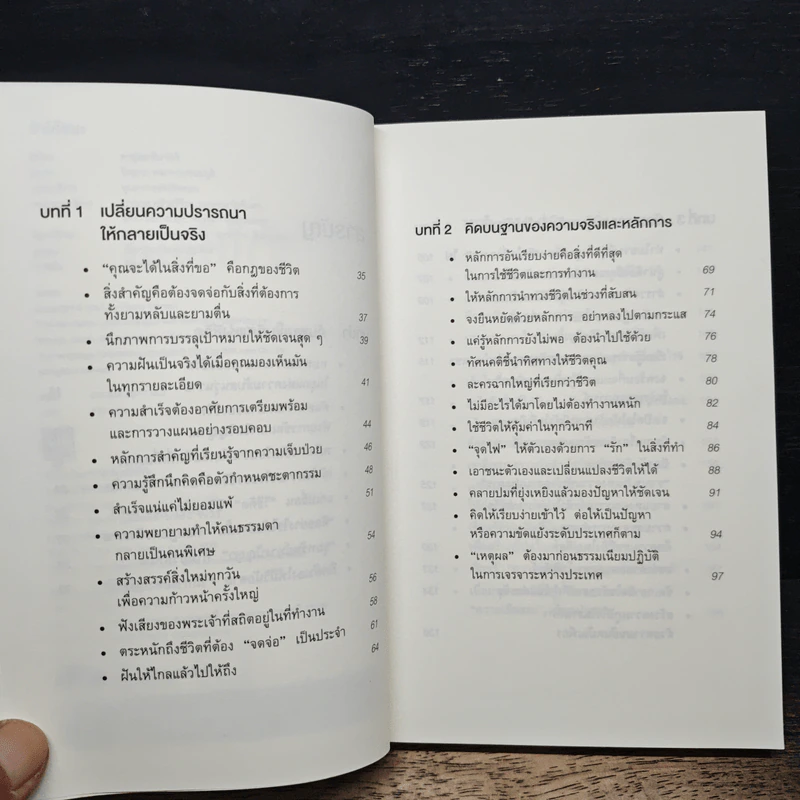 บทที่ 1 เปลี่ยนความปรารถนา
ให้กลายเป็นจริง
• "คุณจะได้ในสิ่งที่ขอ" คือกฎของชีวิต 35
• สิ่งสำคัญคือต้องจดจ่อกับสิ่งที่ต้องการ
ทั้งยามหลับและยามตื่น 37
• นึกภาพการบรรลุเป้าหมายให้ชัดเจนสุด ๆ 39
• ความฝันเป็นจริงได้เมื่อคุณมองเห็นมัน
ในทุกรายละเอียด 41
• ความสำเร็จต้องอาศัยการเตรียมพร้อม
และการวางแผนอย่างรอบคอบ 44
• หลักการสำคัญที่เรียนรู้จากความเจ็บป่วย 46
• ความรู้สึกนึกคิดคือตัวกำหนดชะตากรรม 48
• สำเร็จแน่แค่ไม่ยอมแพ้ 51
• ความพยายามทำให้คนธรรมดา
กลายเป็นคนพิเศษ 54
• สร้างสรรค์สิ่งใหม่ทุกวัน
เพื่อความก้าวหน้าครั้งใหญ่ 56
• ฟังเสียงของพระเจ้าที่สถิตอยู่ในที่ทำงาน 58
• ตระหนักถึงชีวิตที่ต้อง "จดจ่อ" เป็นประจำ 61
• ฝันให้ไกลแล้วไปให้ถึง 64
บทที่ 2 คิดบนฐานของความจริงและหลักการ
• หลักการอันเรียบง่ายคือสิ่งที่ดีที่สุด
ในการใช้ชีวิตและการทำงาน 69
• ให้หลักการนำทางชีวิตในช่วงที่สับสน 71
• จงยืนหยัดด้วยหลักการ อย่าหลงไปตามกระแส 74
• แค่รู้หลักการยังไม่พอ ต้องนำไปใช้ด้วย 76
• ทัศนคติชี้นำทิศทางให้ชีวิตคุณ 78
• ละครฉากใหญ่ที่เรียกว่าชีวิต 80
• ไม่มีอะไรได้มาโดยไม่ต้องทำงานหนัก 82
• ใช้ชีวิตให้คุ้มค่าในทุกวินาที 84
• "จุดไฟ" ให้ตัวเองด้วยการ "รัก" ในสิ่งที่ทำ 86
• เอาชนะตัวเองและเปลี่ยนแปลงชีวิตให้ได้ 88
• คลายปมที่ยุ่งเหยิงแล้วมองปัญหาให้ชัดเจน 91
• คิดให้เรียบง่ายเข้าไว้ ต่อให้เป็นปัญหา
หรือความขัดแย้งระดับประเทศก็ตาม 94
• "เหตุผล" ต้องมาก่อนธรรมเนียมปฏิบัติ
ในการเจรจาระหว่างประเทศ 97